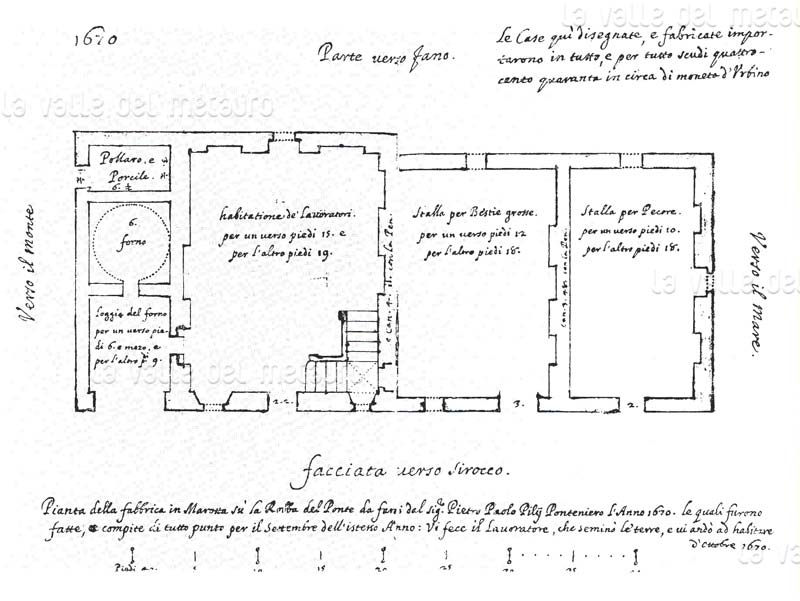 1670
Parte verso fano.
Le Case quì disegnate, e fabricate impor-
tarono in tutto, e per tutto scudi quattro-
cento quaranta in circa di moneta d'Urbino
la valle del metauro
la valle del metauro
Pollaro, e
Porcile.
6. ½
6.
forno
Loggia del forno
per un verso pie-
di 6. e mezo, e
per l'altro p. 9.
habitatione de' Lavoratori.
per un verso piedi 15. e
per l'altro piedi 19.
Stalla per Bestie grosse.
per un verso piedi 12
per l'altro piedi 18.
Stalla per Pecore.
per un verso piedi 10.
per l'altro piedi 18.
Verso il monte
Verso il Mare.
la valle del
la valle del metauro
2.2.
3.
2.
facciata verso Sirocco.
Pianta della fabbrica in Marotta sù la del Ponte da farsi dal sig. Pietro Paolo Pilij Ponteniero l'Anno 1670. le quali furono
fatte, e compite di tutto punto per il Settembre dell'istesso Anno: Vi fece il Lavoratore, che seminò le terre, e vi andò ad habitare
d'ottobre 1670.
la va
Piedi
5
10
15
20
25
30
35
40